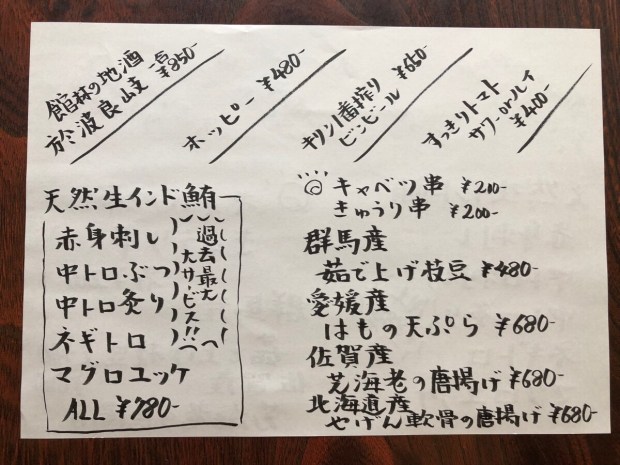 館林の地酒
於波良岐 一合 ¥850-
ホッピー ¥480-
キリン1番搾り
ビンビール ¥650
すっきりトマト
サワー or ハイ
¥400-
天然生インド鮪
赤身刺し
中トロぶつ
中トロ炙り
ネギトロ
マグロユッケ
ALL ¥780-
過去最大
大サービス!!
キャベツ串 ¥200-
きゅうり串 ¥200-
群馬産
茹で上げ枝豆 ¥480-
愛媛産
はもの天ぷら ¥680-
佐賀産
芝海老の唐揚げ ¥680-
北海道産
やげん軟骨の唐揚げ ¥680-